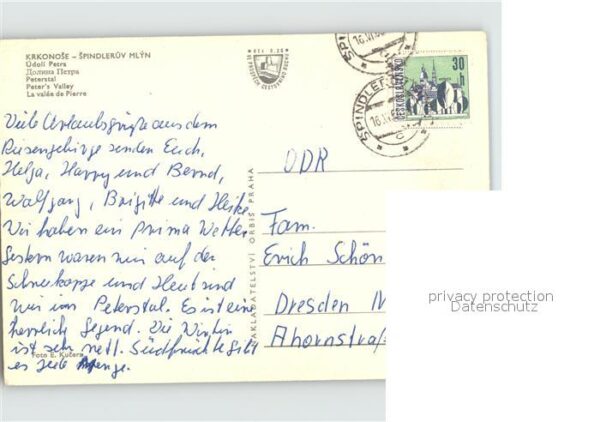 KRKONOŠE – ŠPINDLERŮV MLÝN
Údolí Petra
Долина Петра
Peterstal
Peter's Valley
La valée de Pierre
Kčs 0,20
30 h
ČESKOSLOVENSKO
ŠPINDLER
ŠPINDLER
Viele Urlaubsgrüße aus dem
Riesengebirge senden Euch,
Helga, Harry und Bernd,
Wolfgang, Brigitte und Heike
Wir haben ein prima Wetter
Gestern waren wir auf der
Schneekoppe und Heut sind
wir im Peterstal. Es ist eine
herrliche Gegend. Die Wirtin
ist sehr nett. Südfrüchte gibt
es jede Menge.
Foto E. Kučera
NAKLADATELSTVÍ ORBIS PRAHA
DDR
Fam.
Erich Schön
Dresden N
Ahornstraß
privacy protection
Datenschutz